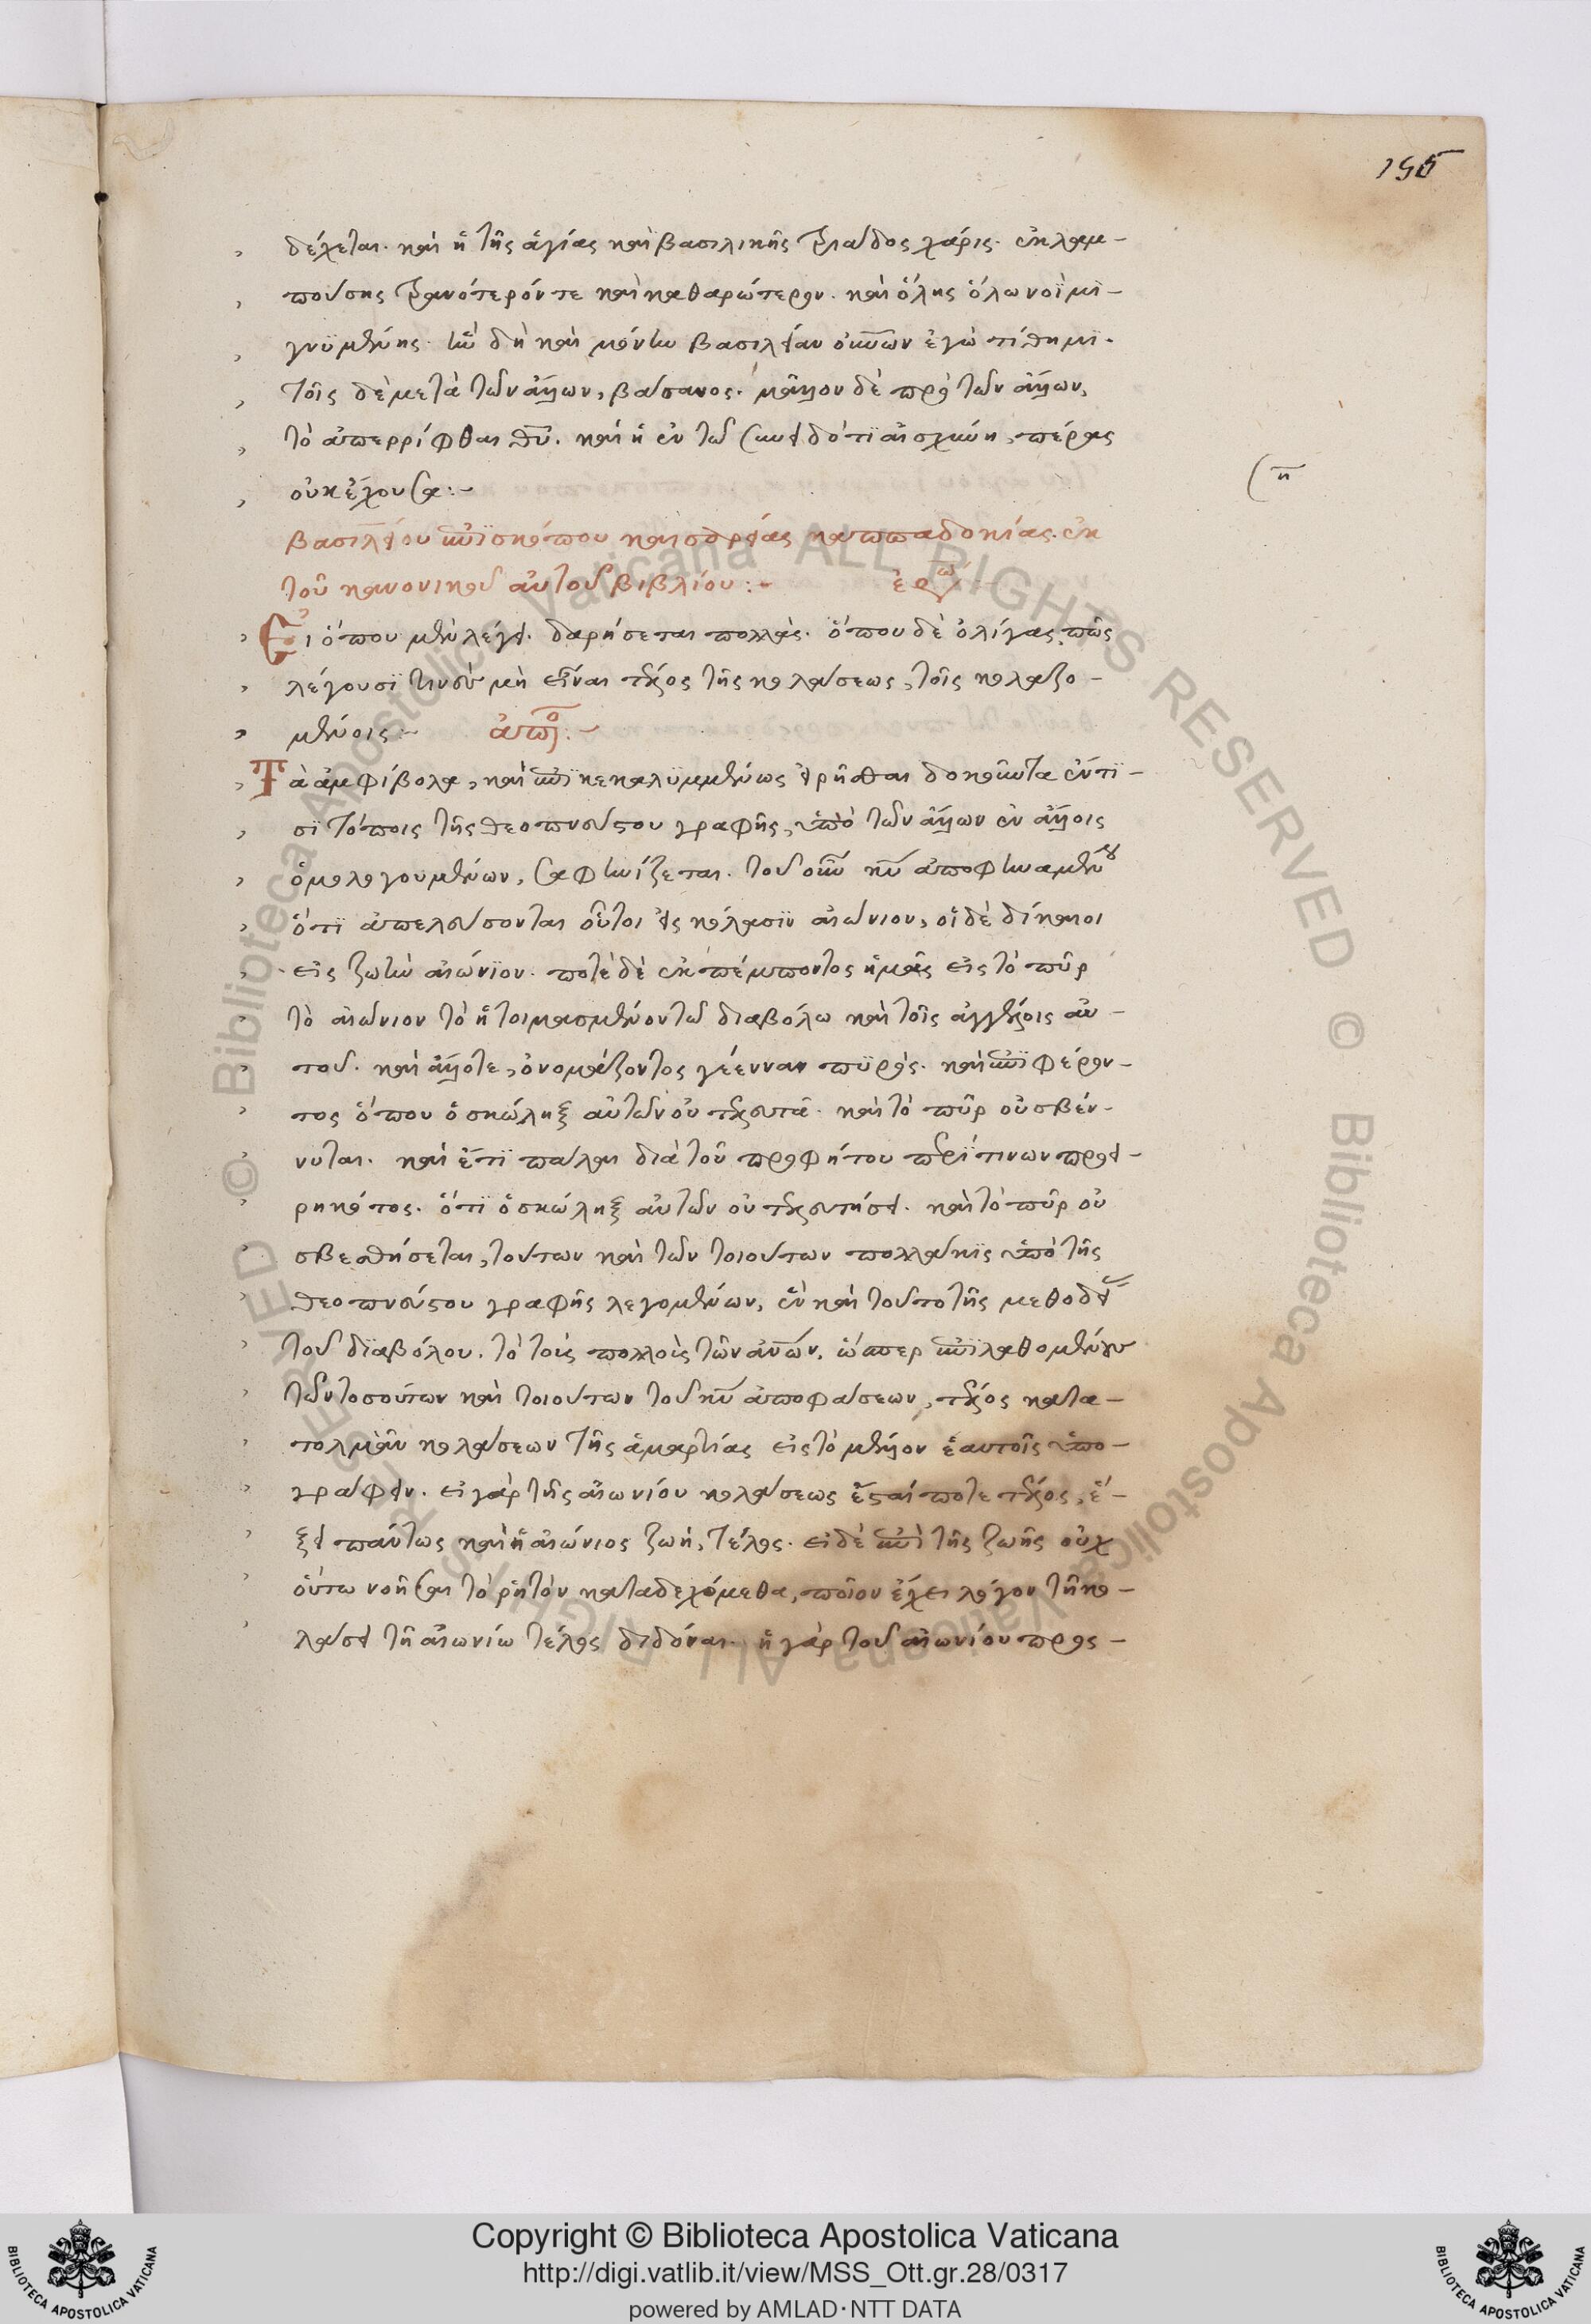 155
δέχεται. καὶ ἡ τῆς ἁγίας καὶ βασιλικῆς τριάδος χάρις. ἐκλαμ-
πούσης τρανότερόν τε καὶ καθαρώτερον. καὶ ὅλης ὅλω νοῒ μι-
γνϋμένης. ἣν δὴ καὶ μόνην βασιλείαν οὐνῶν ἐγὼ τίθημϊ.
τοῖς δὲ μετὰ τῶν ἄλλων, βάσανος. μᾶλλον δὲ πρὸ τῶν ἄλλων,
τὸ ἀπερρίφθαι θῦ. καὶ ἡ ἐν τῶ συνειδότϊ αἰσχύνη, πέρας
οὐκ ἔχουσα:-
ση
βασιλείου ἐπϊσκόπου καισαρείας καππαδοκίας. ἐκ
τοῦ κανονικοῦ αὐτοῦ βιβλίου:- ἐρώ:-
Εἰ ὅπου μὲν λέγει. δαρήσεται πολλάς. ὅπου δὲ ὀλίγας, πῶς
λέγουσΐ τινες μὴ εἶναι τέλος τῆς κολάσεως, τοῖς κολαζο-
μένοις:- ἀπο:-
Τὰ ἀμφίβολα, καὶ ἐπϊκεκαλϋμμένως εἰρῆσθαι δοκοῦντα ἔν τϊ-
σϊ τόποις τῆς θεοπνεύστου γραφῆς, ὑπὸ τῶν ἄλλων ἐν ἄλλοις
ὁμολογουμένων, σαφηνίζεται. τοῦ οὖν κῦ ἀποφηναμένου
ὅτϊ ἀπελεύσονται οὗτοι εἰς κόλασϊν αἰώνιον, οἱ δὲ δίκαιοι
εἰς ζωὴν αἰώνϊον. ποτὲ δὲ ἐκπέμποντος ἡμᾶς εἰς τὸ πῦρ
τὸ αἰώνιον τὸ ἡτοιμασμένον τῶ διαβόλω καὶ τοῖς ἀγγέλοις αὐ-
τοῦ. καὶ ἄλλοτε, ὀνομάζοντος γέενναν πϋρός. καὶ ἐπϊφέρον-
τος ὅπου ὁ σκώληξ αὐτῶν οὐ τελευτᾶ. καὶ τὸ πῦρ οὐ σβέν-
νυται. καὶ ἔτϊ πάλαι διὰ τοῦ προφήτου περΐ τινων προει-
ρηκότος. ὅτϊ ὁ σκώληξ αὐτῶν οὐ τελευτήσει. καὶ τὸ πῦρ οὐ
σβεσθήσεται, τούτων καὶ τῶν τοιούτων πολλάκϊς ὑπὸ τῆς
θεοπνεύστου γραφῆς λεγομένων, ἓν καὶ τοῦτο τῆς μεθοδείας
τοῦ δϊαβόλου. τὸ τοὺς πολλοὺς τῶν ἀνῶν. ὥσπερ ἐπϊλαθομένους
τῶν τοσούτων καὶ τοιούτων τοῦ κῦ ἀποφάσεων, τέλος κατα-
τολμᾶν κολάσεων τῆς ἁμαρτίας εἰς τὸ μέλλον ἑαυτοῖς ὑπο-
γράφειν. εἰ γὰρ τῆς αἰωνίου κολάσεως ἔσται ποτε τέλος, ἕ-
ξει πάντως καὶ ἡ αἰώνιος ζωὴ, τέλος. εἰ δὲ ἐπὶ τῆς ζωῆς οὐχ
οὕτω νοῆσαι τὸ ῥητὸν καταδεχόμεθα, ποῖον ἔχει λόγον τῆ κο-
λάσει τῆ αἰωνίω τέλος διδόναι. ἡ γὰρ τοῦ αἰωνίου προς-
Copyright © Biblioteca Apostolica Vaticana
http://digi.vatlib.it/view/MSS_Ott.gr.28/0317
powered by AMLAD·NTT DATA